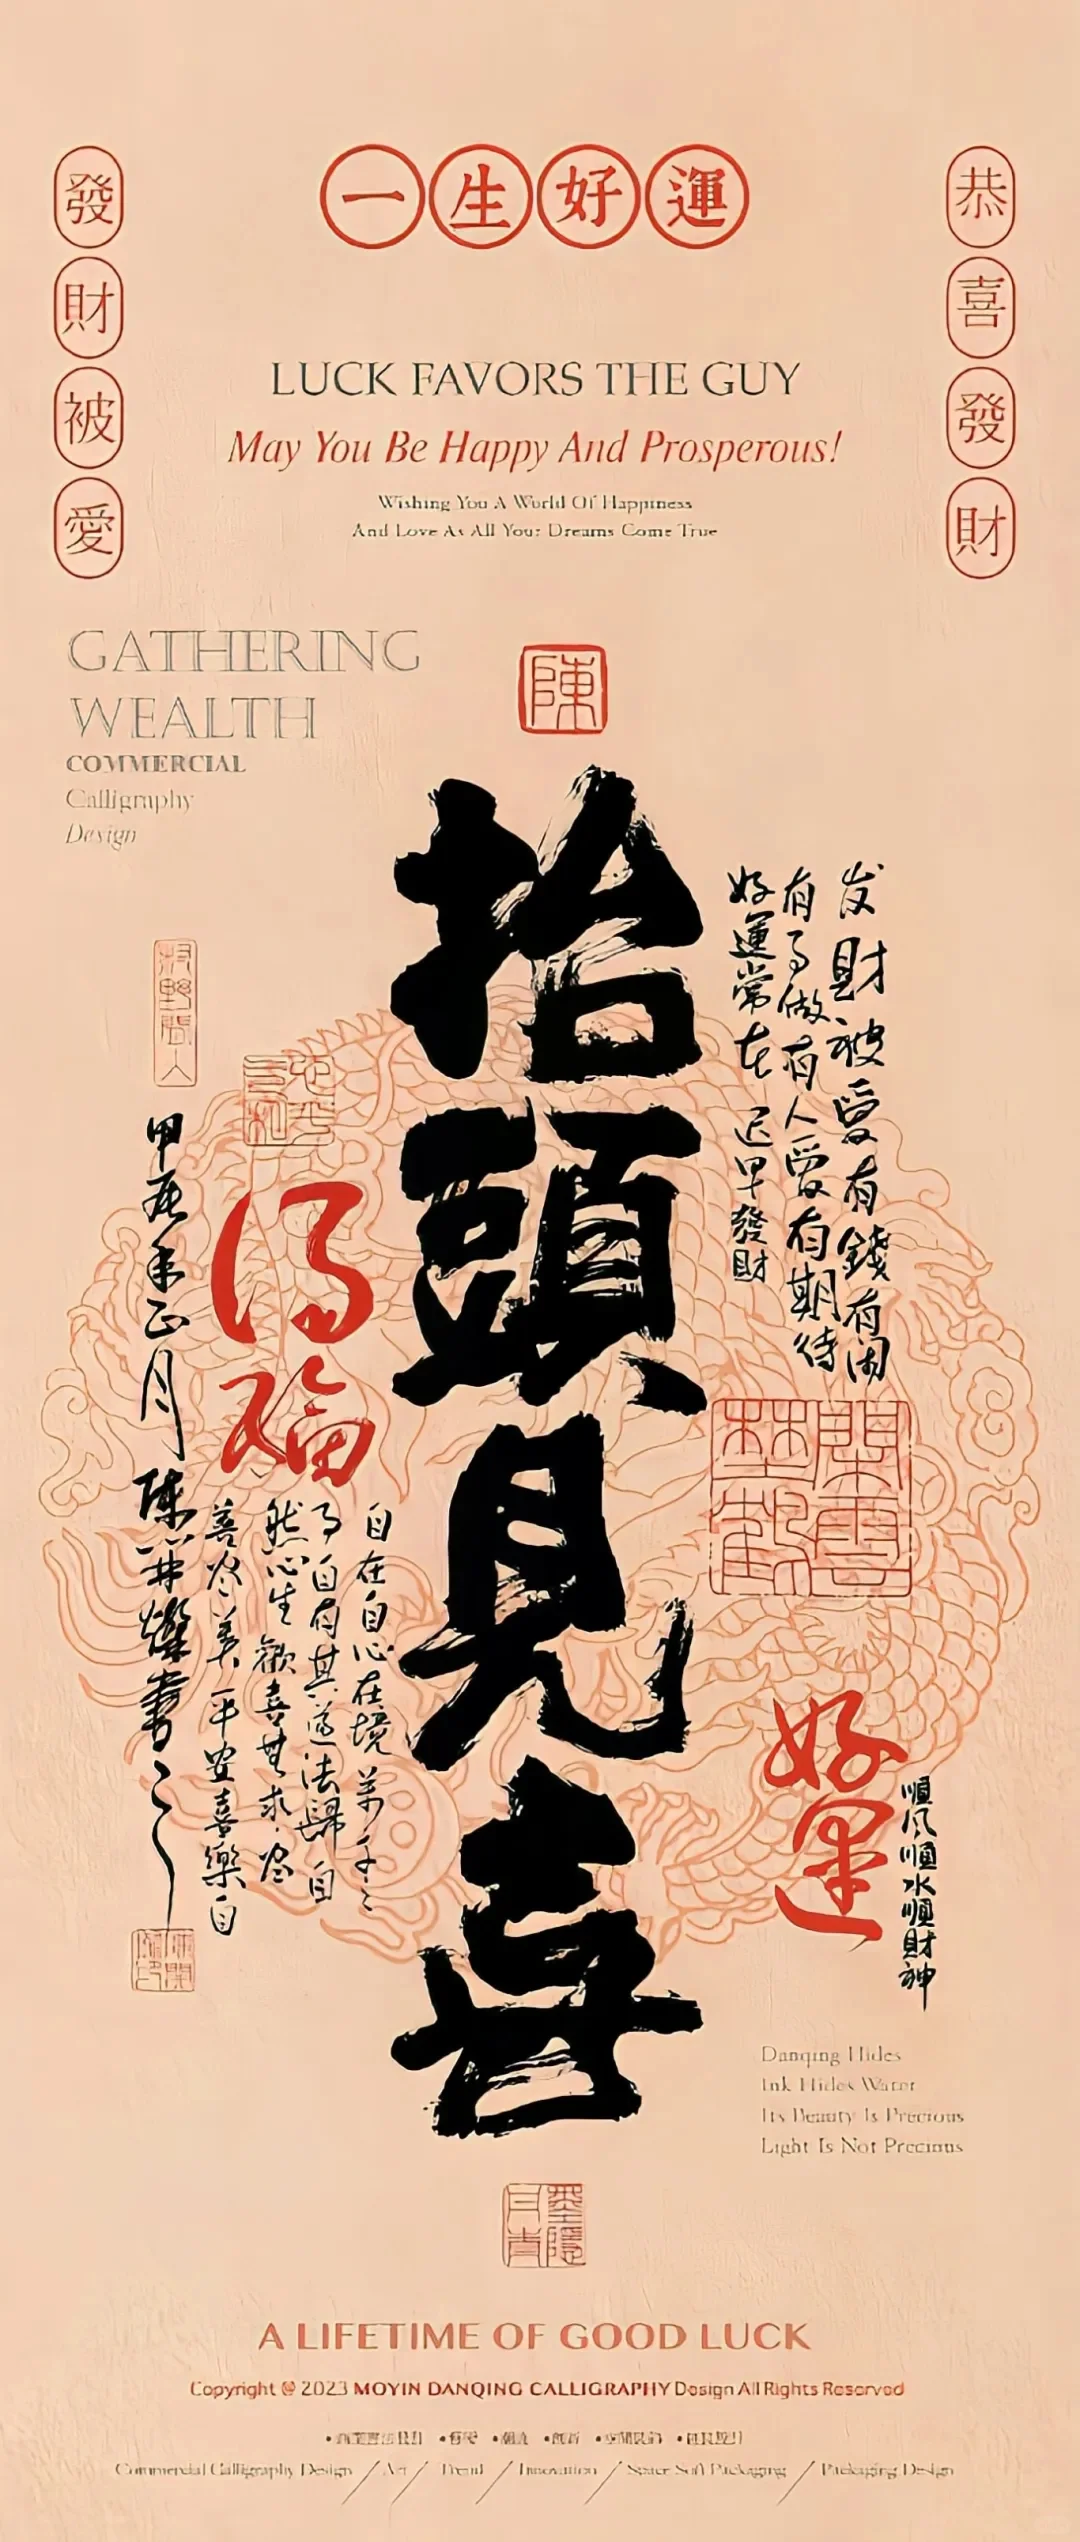 一生好運
發財被愛
恭喜發財
LUCK FAVORS THE GUY
May You Be Happy And Prosperous!
Wishing You A World Of Happiness
And Love As All Your Dreams Come True
GATHERING
WEALTH
COMMERCIAL
Calligraphy
Design
陳
抬頭見喜
发財被愛有錢有闲
有事做有人愛有期待
好運常在 迟早發財
得福
甲辰年正月陳
書之
自在自心在境
事自有其道法歸自
然心生歡喜無求
善尽美平安喜樂自
好運
順風順水順財神
Danqing Hides
Ink Hides Water
Its Beauty Is Precious
Light Is Not Precious
A LIFETIME OF GOOD LUCK
Copyright @ 2023 MOYIN DANQING CALLIGRAPHY Design All Rights Reserved
Commercial Calligraphy Design / Art / Trend / Innovation / Space Soft Packaging / Packaging Design